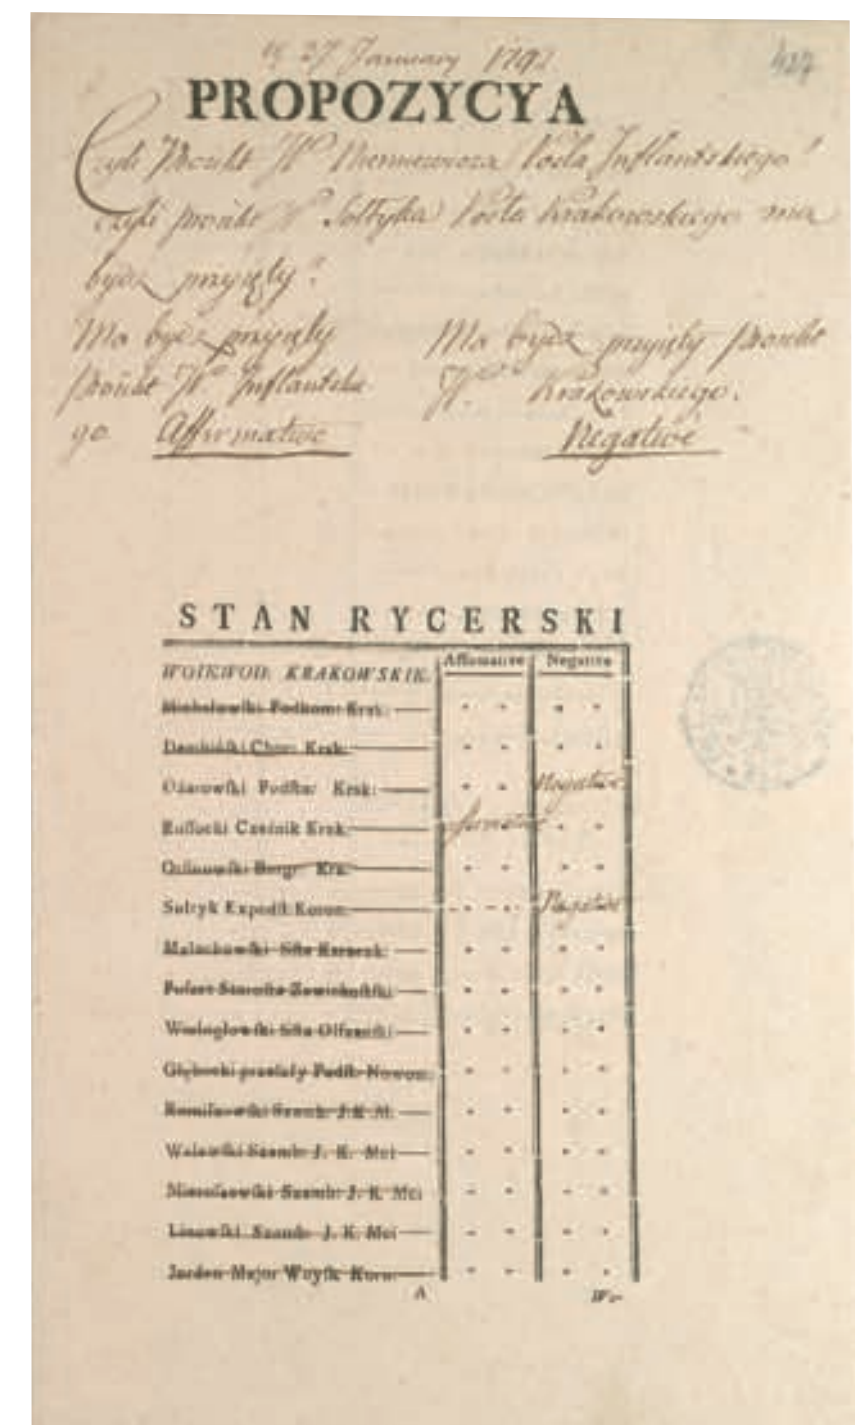 27 January 1792
427
PROPOZYCYA
Czyli Proiekt JP Niemcewicza Posła Inflantskiego?
czyli proiekt JP Sołtyka Posła Krakowskiego ma
bydz przyięty?
Ma bydz przyięty
proiekt Inflantskie
go Affirmative
Ma bydz przyięty Proiekt
Krakowskiego.
Negative
STAN RYCERSKI
WOIEWOD: KRAKOWSKIE.
Affirmative Negative
Michałowſki Podkom: Krak:
Dembińſki Chor: Krak:
Ożarowſki Podſtar Krak: Negative
Ruſſocki Czeſnik Krak: affirmative
Burgr: Kra:
Sołtyk Expedſt Koron: Negative
Małachowſki Sſta
Staroſta Zawichoſtſki
Wielogłowſki Sſta
Głębocki Podſt: Nowom:
Szamb: J.K.M.
Walewſki Szamb: J. K. Mci
Mieroſzowſki Szamb: J. K. Mci
Linowſki Szamb: J. K. Mci
Jorden Major Woyſk Koron:
A Wo-